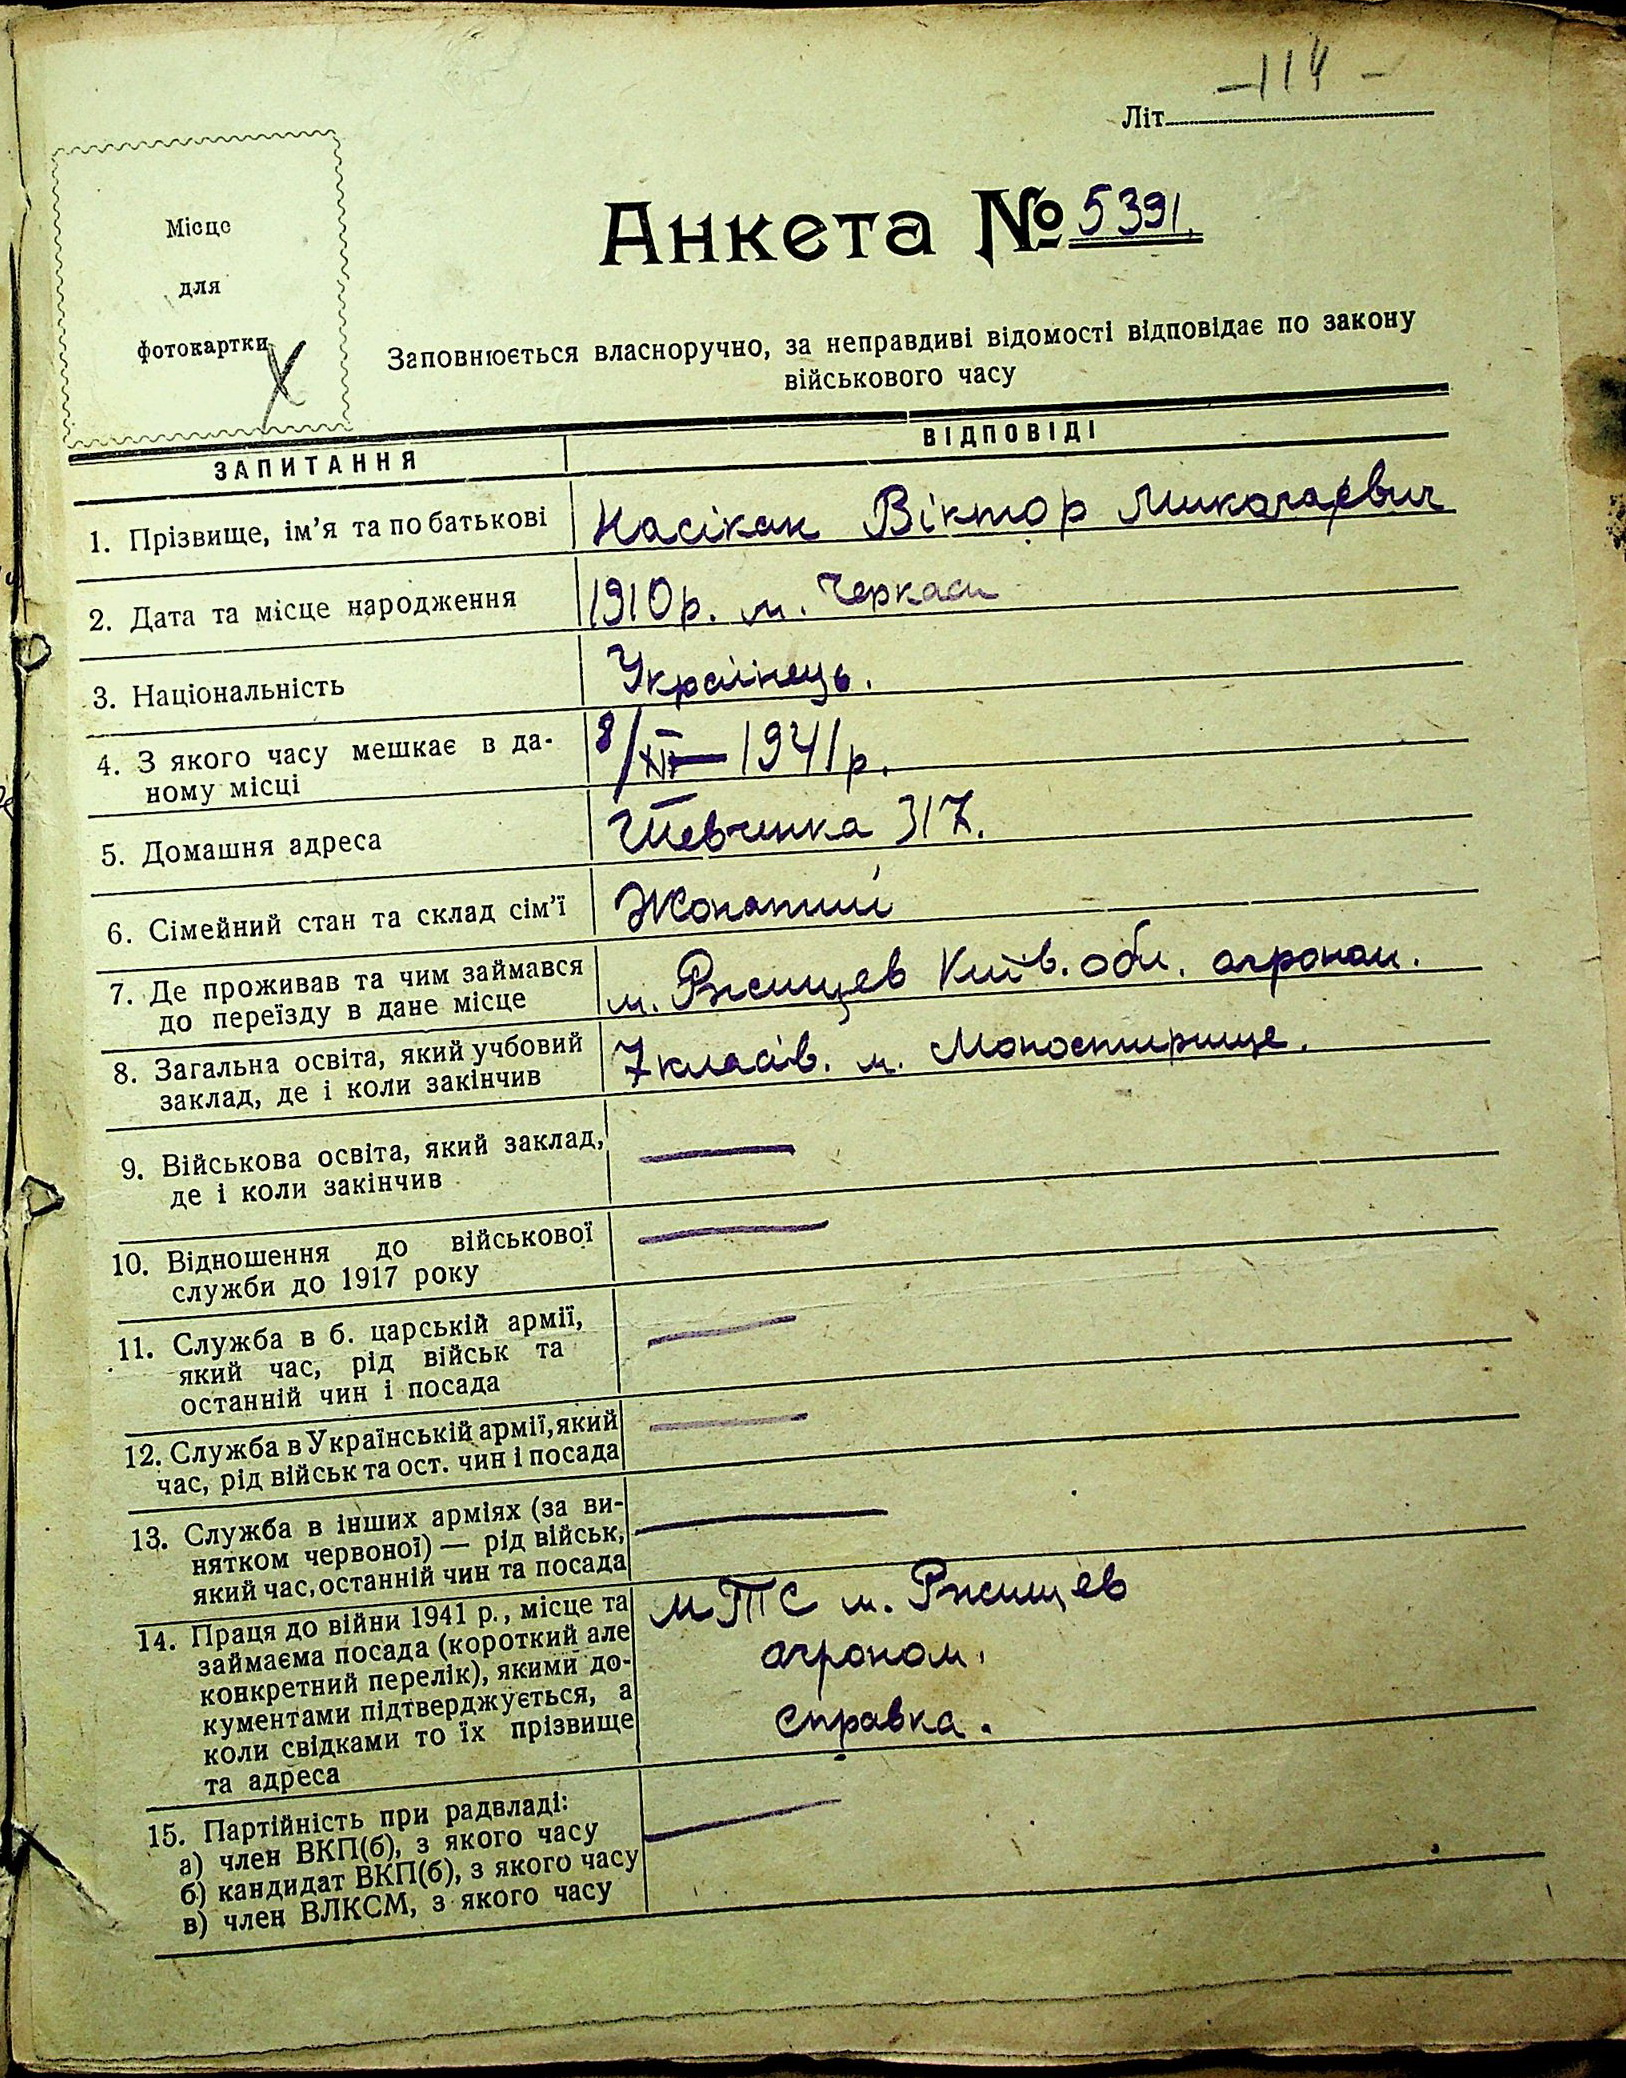 -114-
Літ
Місце
для
фотокартки
Анкета № 5391.
Заповнюється власноручно, за неправдиві відомості відповідає по закону
військового часу
ЗАПИТАННЯ
ВІДПОВІДІ
1. Прізвище, ім'я та по батькові
Насікан Віктор Миколаєвич
2. Дата та місце народження
1910 р. м. Черкаси
3. Національність
Українець.
4. З якого часу мешкає в да-
ному місці
8/XII-1941 р.
5. Домашня адреса
Шевченка 317.
6. Сімейний стан та склад сім'ї
Жонатий
7. Де проживав та чим займався
до переїзду в дане місце
м. Ржищев Київ. обл. агроном.
8. Загальна освіта, який учбовий
заклад, де і коли закінчив
7 класів. м. Монастирище.
9. Військова освіта, який заклад,
де і коли закінчив
10. Відношення до військової
служби до 1917 року
11. Служба в б. царській армії,
який час, рід військ та
останній чин і посада
12. Служба в Українській армії, який
час, рід військ та ост. чин і посада
13. Служба в інших арміях (за ви-
нятком червоної) — рід військ,
який час, останній чин та посада
14. Праця до війни 1941 р., місце та
займаєма посада (короткий але
конкретний перелік), якими до-
кументами підтверджується, а
коли свідками то їх прізвище
та адреса
МТС м. Ржищев
агроном.
справка.
15. Партійність при радвладі:
а) член ВКП(б), з якого часу
б) кандидат ВКП(б), з якого часу
в) член ВЛКСМ, з якого часу